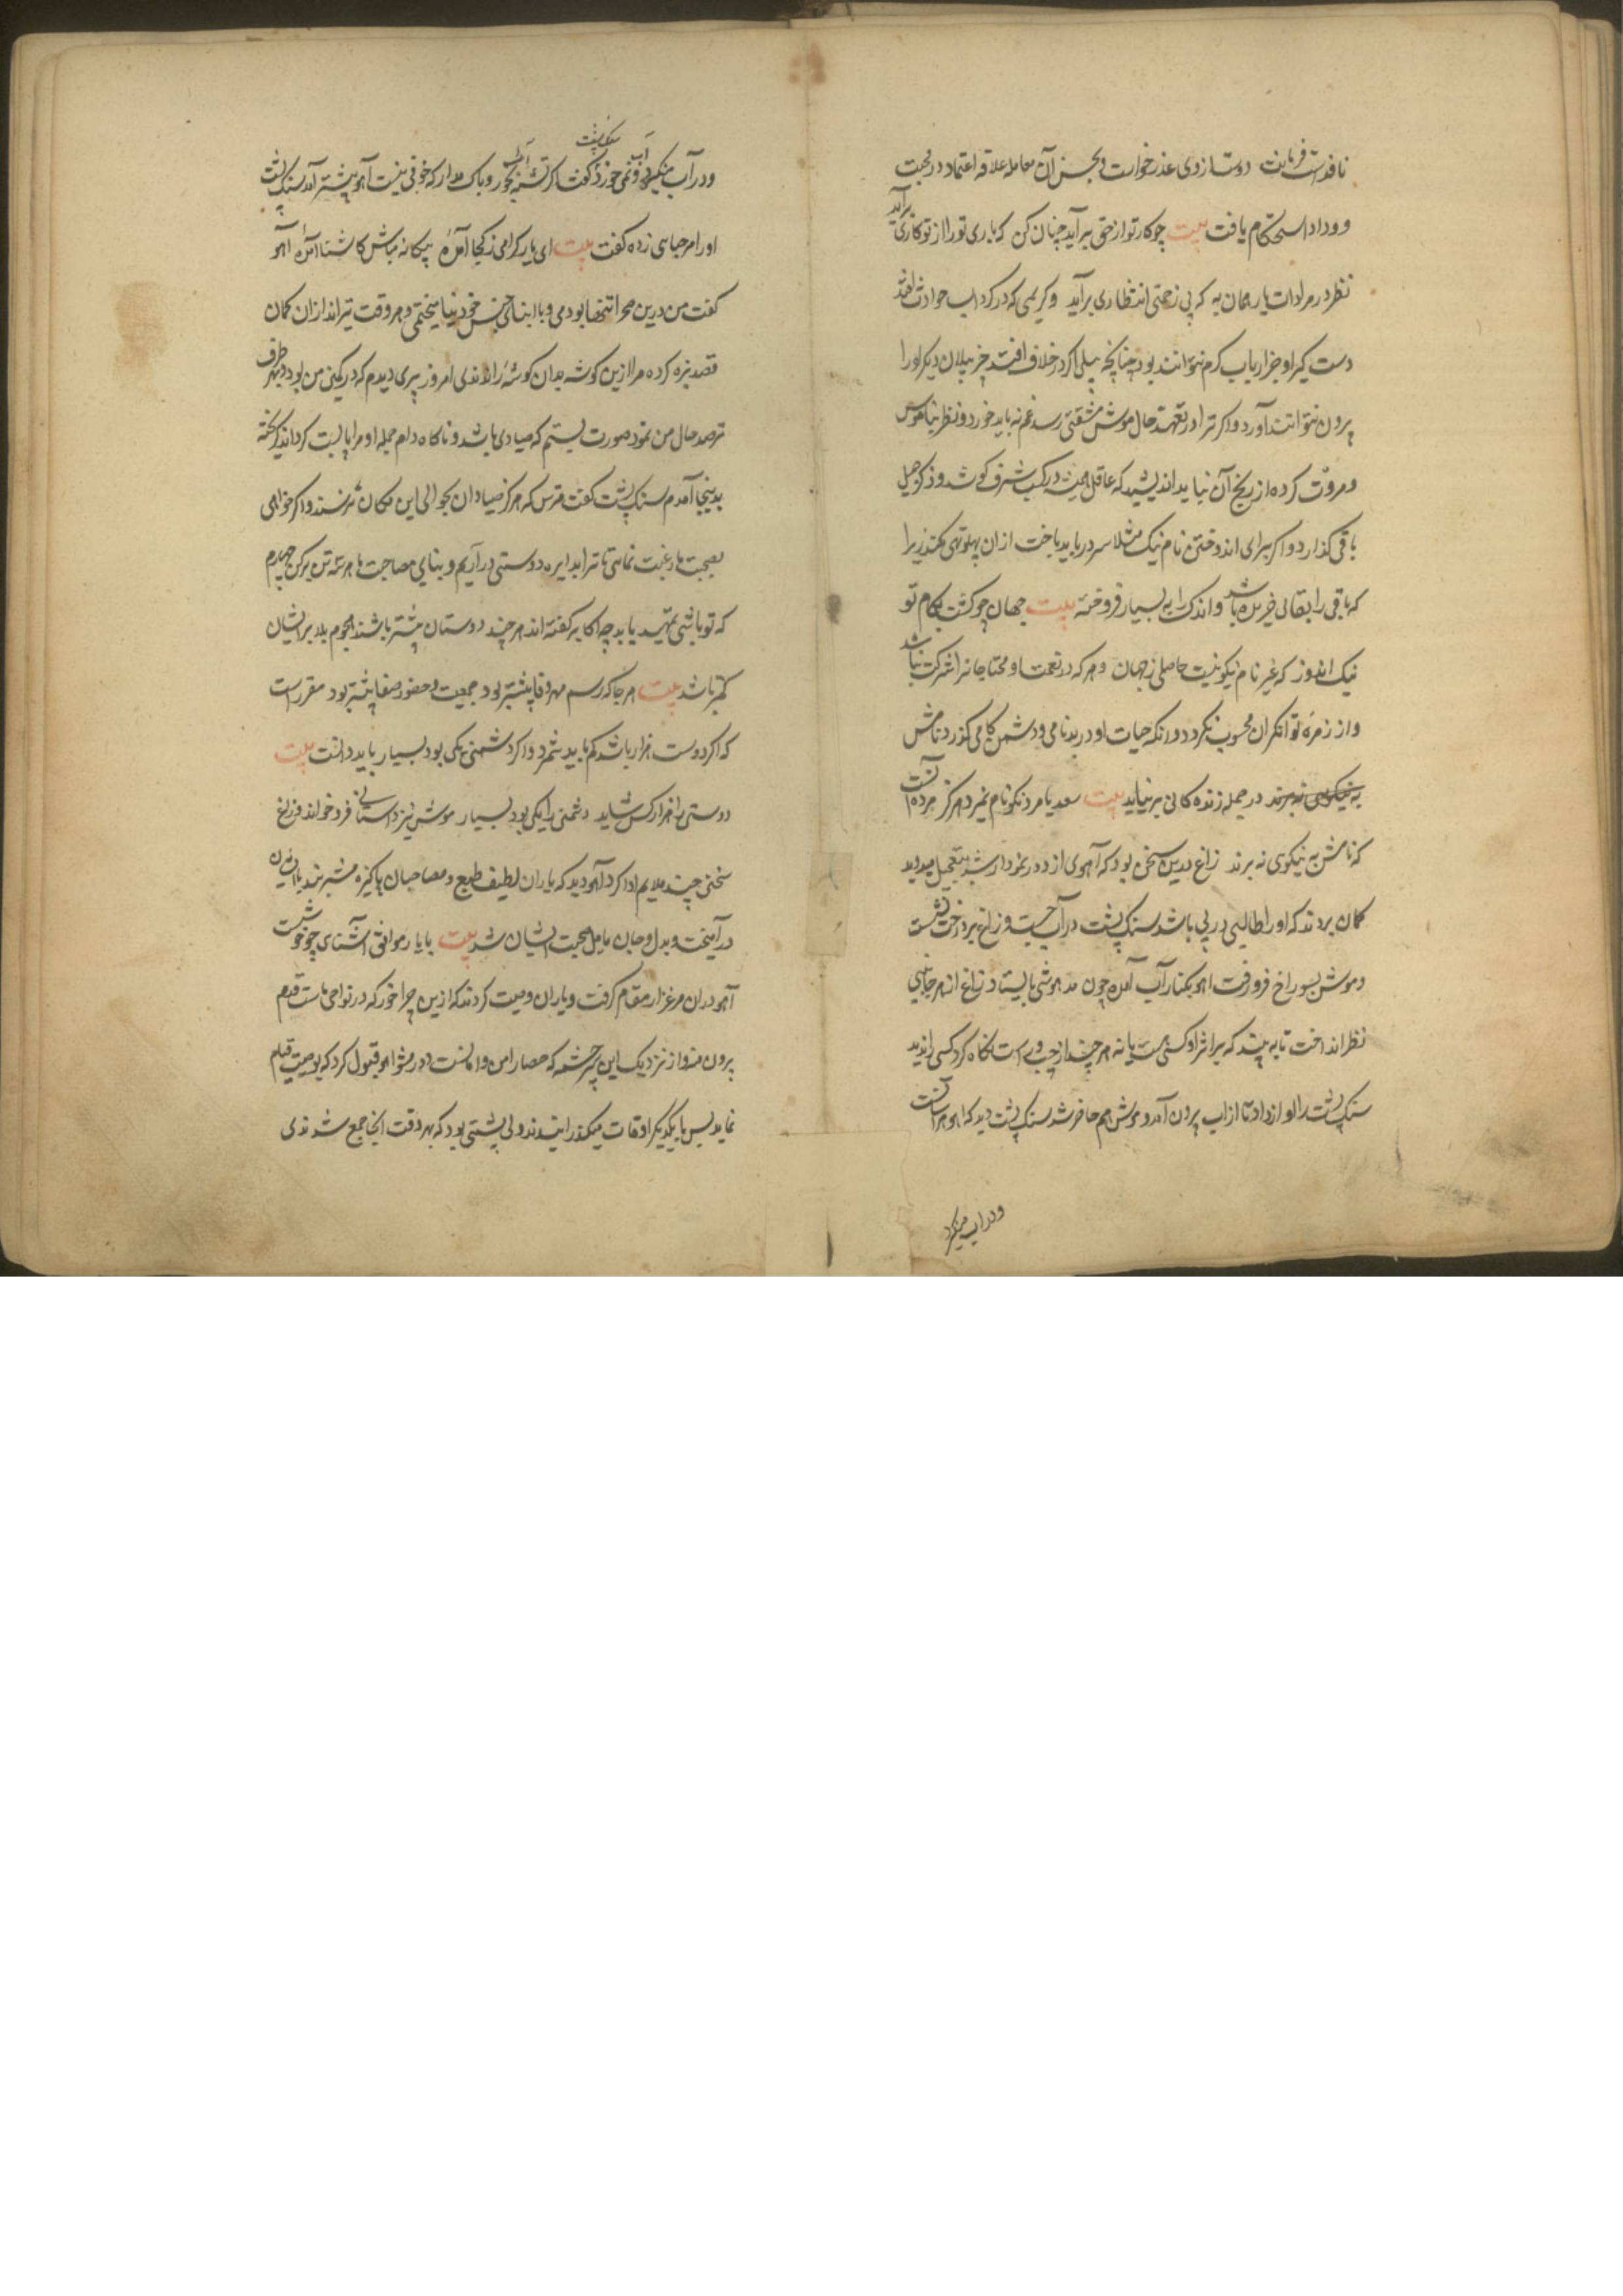 نافذ است فرمانت دوستا زودی عذر خواست و بحسن آن معامله علاقه اعتماد در محبت
و وداد استحکام یافت بیت چو کار تو از حق برآید چنان کن که باری تو را از تو کاری برآید
نظر در مرادات یار همان به که بی زحمتی انتظاری برآید و کریمی که در کرداب حوادث افتد
دست کیر او جز ارباب کرم نتوانند بود چنانچه پیلی اکر در خلاف افتد جز پیلان دیکر اورا
بیرون نتوانند آورد و اکر ترا در تعهد حال موش مشقتی رسد غم نه باید خورد و نظر بناموس
و مروت کرده از رنج آن نیاید اندیشید که عاقل همیشه در کسب شرف کوشد و ذکر جمیل
باقی کذارد و اکر برای اندوختن نام نیک مثلا سر در باید باخت ازان پهلو تهی نکند زیرا
که باقی را بفانی خریده باشد و اندک را به بسیار فروخته بیت جهان چو کشت بکام تو
نیک اندوز که غیر نام نیکو نیست حاصلی زجهان و هر که در نعمت او محتاجانرا شرکت نباشد
و از زمره توانکران محسوب نکردد و انکه حیات او در بدنامی و دشمن کامی کذرد نامش
به نیکویی نه برند در جمله زنده کانی برنیاید بیت سعدیا مرد نکو نام نمیرد هرکز مرده آنست
که نامش به نیکوی نه برند زاغ بدین سخن بود که آهوی از دور نمودار شد بتعجیل میدوید
کمان بردند که اورا طالبی در پی باشد سنک پشت در آب جست و زاغ بر درخت نشست
و موش بسوراخ فرو رفت اهو بکنار آب آمده چون مدهوشی بایستاد زاغ از هر جانبی
نظر انداخت تا به بیند که بر اثر او کسی هست یا نه هر چند از چپ و راست نکاه کرد کسی را ندید
سنک پشت را اواز داد تا از اب بیرون آمد و موش هم حاضر شد سنک پشت دید که اهو هراسانست
و در اب مینکرد
و در آب مینکرد و نمی خورد گفت اکر تشنه بخور و باک مدار که خوفی نیست آهو پیشتر آمد سنک پشت
اورا مرحبای زده گفت بیت ای یار کرامی زکجا آمده بیکانه مباش کاشنا آمده آهو
گفت من درین صحرا تنها بودمی و با ابنای جنس خود نیامیختمی و هر وقت تیر اندازان کمان
قصد بزه کرده مرا ازین کوشه بدان کوشه راندندی امروز پیری دیدم که در کمین من بود و بهر طرف
ترصد حال من نمود صورت بستم که صیادی باشد و ناکاه دام حیله او مرا پابست کرداند کریخته
بدینجا آمدم سنک پشت گفت مترس که هرکز صیادان بحوالی این مکان نرسند و اکر خواهی
بصحبت ما رغبت نمایی تا ترا بدایره دوستی در آریم و بنای مصاحبت ما هر سه تن برکن چهارم
که تو باشی تمهید یابد چه اکابر گفته اند هر چند دوستان بیشتر باشند هجوم بلا بر ایشان
کمتر باشد بیت هر جا که رسم مهر و وفا بیشتر بود جمعیت و حضور و صفا بیشتر بود مقرر است
که اکر دوست هزار باشد کم باید شمرد و اکر دشمنی یکی بود بسیار باید دانست بیت
دوستی را هزار کس شاید دشمنی را یکی بود بسیار موش نیز داستانی فرو خواند و زاغ
سخنی چند ملایم ادا کرد آهو دید که یاران لطیف طبع و مصاحبان پاکیزه مشربند با ایشان
در آمیخت و بدل و جان مایل صحبت ایشان شد بیت با یار موافق آشنای چه خوشست
آهو دران مرغزار مقام کرفت و یاران وصیت کردند که ازین چراخور که در نواحی ماست قدم
بیرون منه و از نزدیک این سرچشمه که حصار امن و امانست دور مشو اهو قبول کرد که بوصیت قیام
نماید پس با یکدیکر اوقات میکذرانیدند و نی بستی بود که هر وقت انجا جمع شدندی